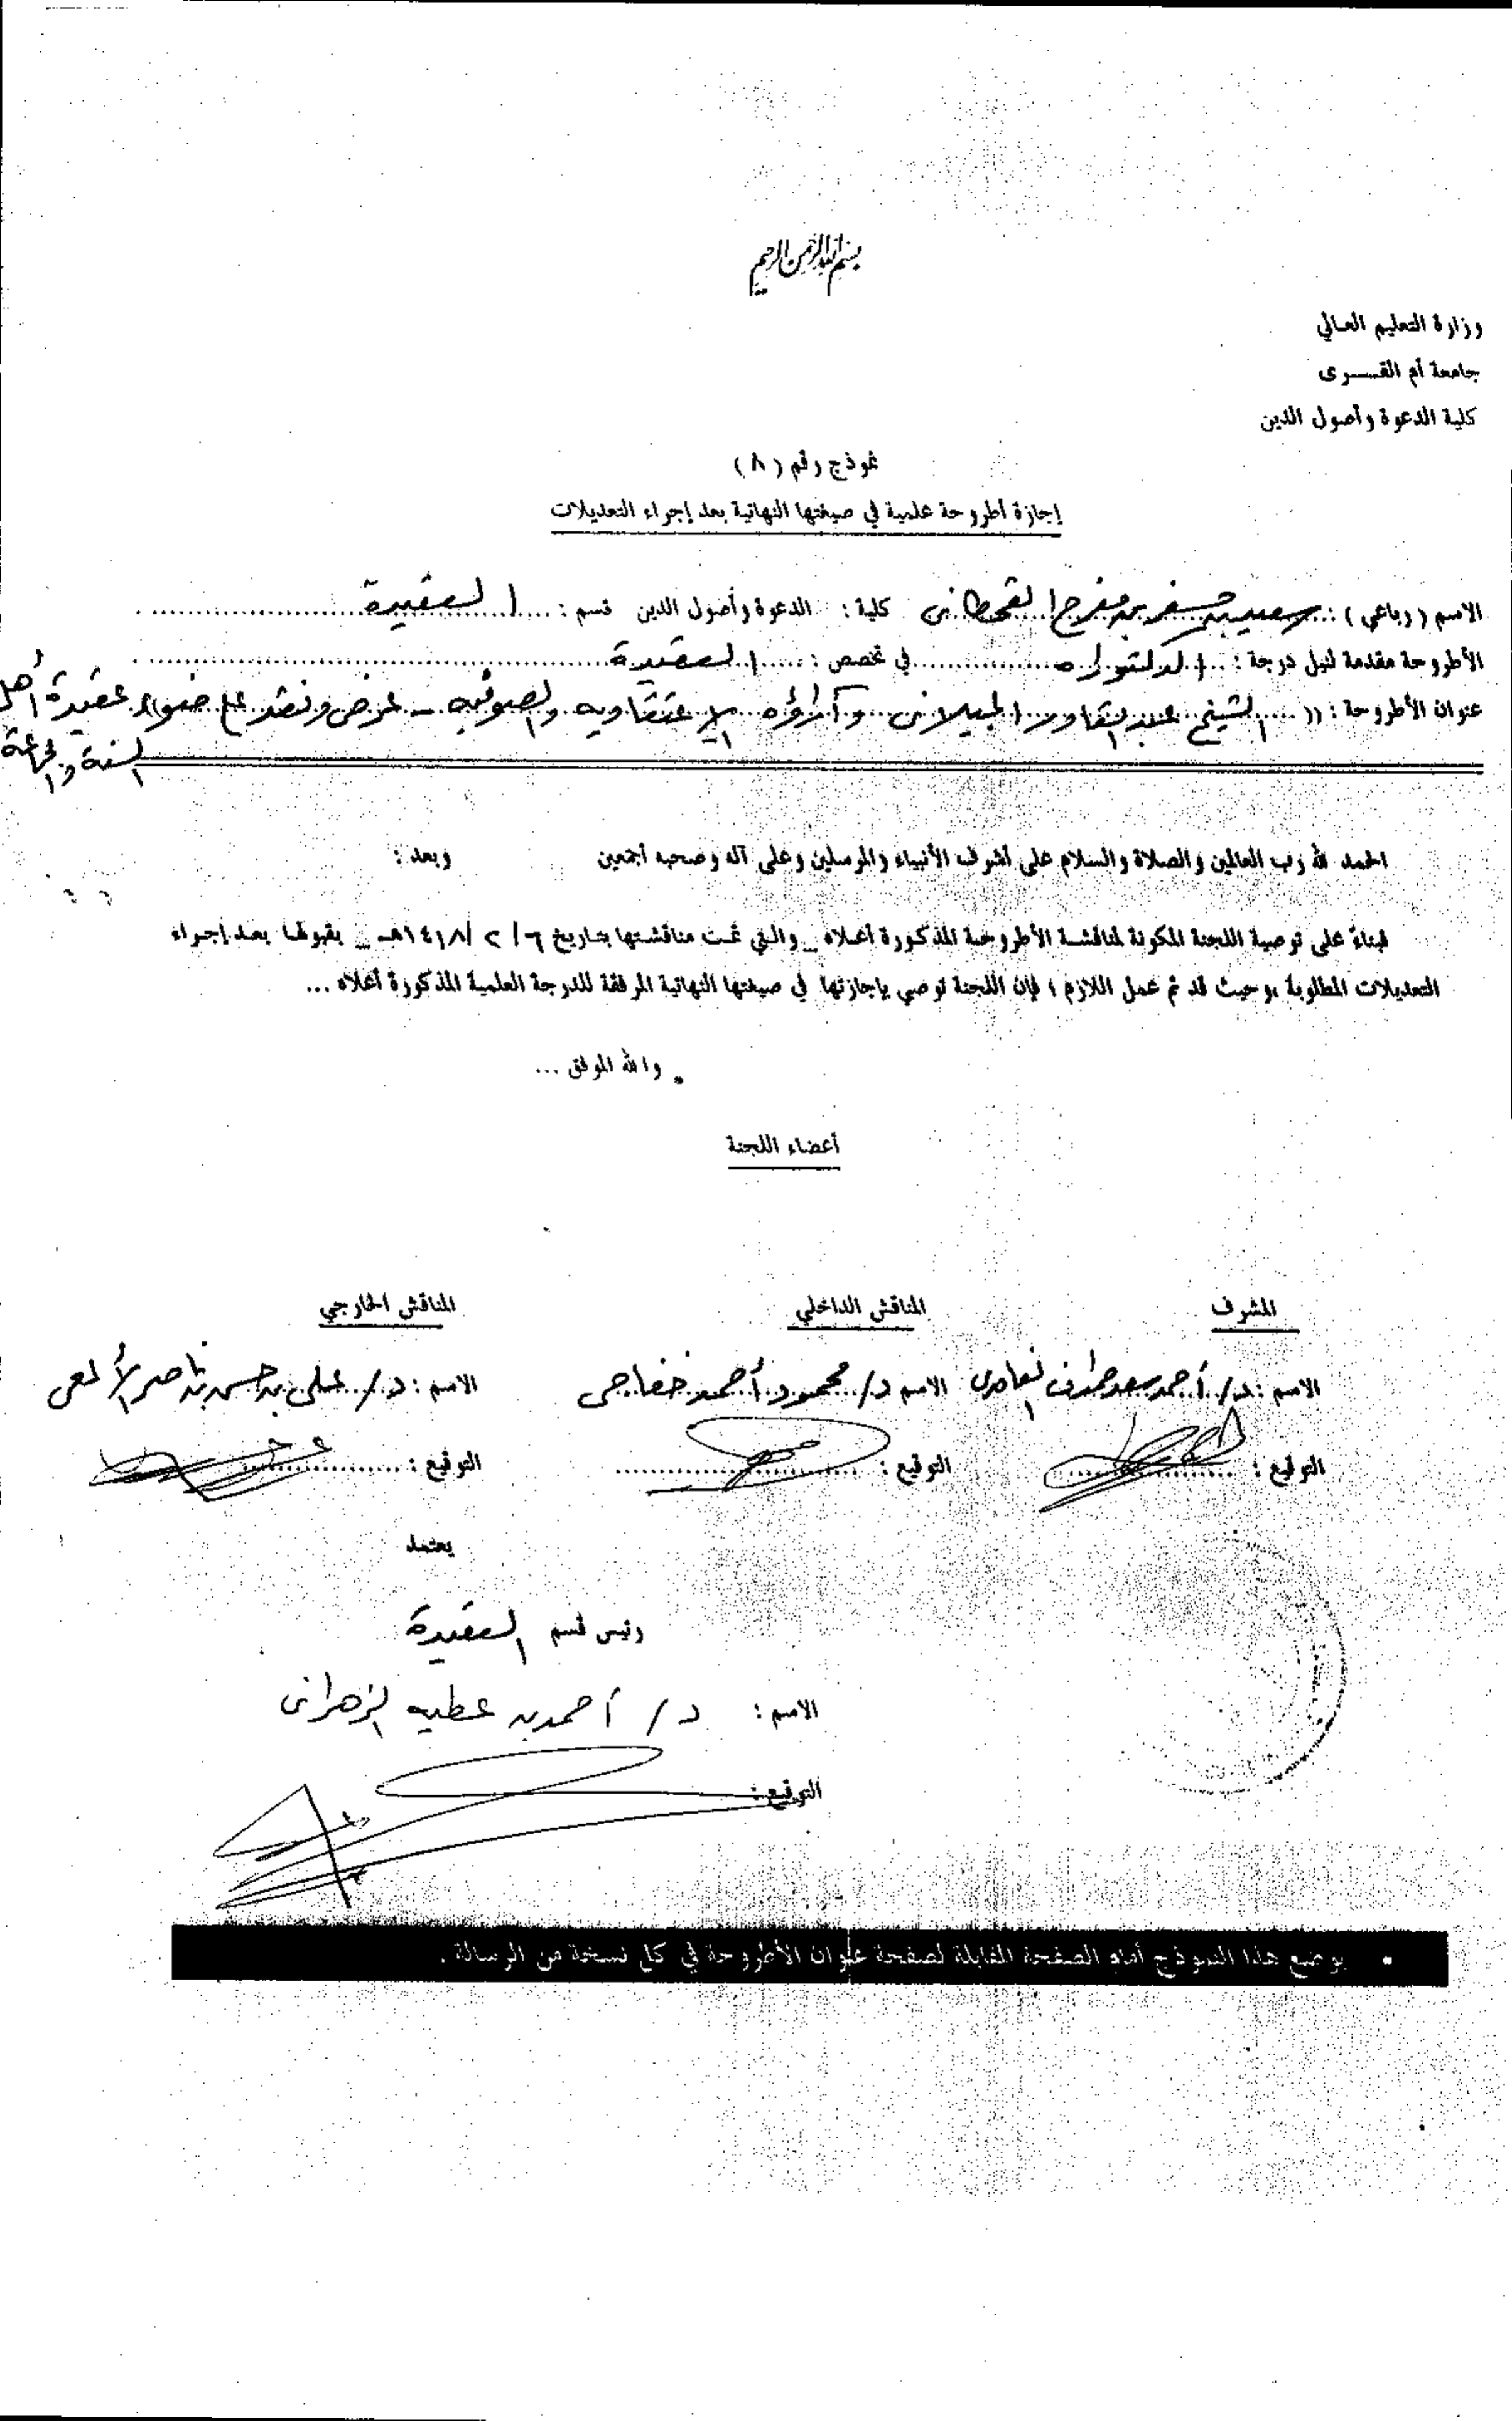 بسم الله الرحمن الرحيم
وزارة التعليم العالي
جامعة أم القــــرى
كلية الدعوة وأصول الدين
نموذج رقم (٨)
إجازة أطروحة علمية في صيغتها النهائية بعد إجراء التعديلات
الاسم (رباعي) : سعيد بن مسفر بن مفرح القحطاني كلية : الدعوة وأصول الدين قسم : العقيدة
الأطروحة مقدمة لنيل درجة : الدكتوراه في تخصص : العقيدة
عنوان الأطروحة : (( الشيخ عبد القادر الجيلاني وآراؤه الاعتقادية والصوفية - عرض ونقد على ضوء عقيدة أهل
السنة والجماعة
الحمد لله رب العالمين والصلاة والسلام على أشرف الأنبياء والمرسلين وعلى آله وصحبه أجمعين وبعد :
فبناءً على توصية اللجنة المكونة لمناقشة الأطروحة المذكورة أعلاه _ والتي تمت مناقشتها بتاريخ ٦ / ٢ /١٤١٨هـ _ بقبولها بعد إجراء
التعديلات المطلوبة ، وحيث قد تم عمل اللازم ؛ فإن اللجنة توصي بإجازتها في صيغتها النهائية المرفقة للدرجة العلمية المذكورة أعلاه ...
والله الموفق ...
أعضاء اللجنة
المشرف المناقش الداخلي المناقش الخارجي
الاسم : د/ أحمد سعد حمدان الغامدي الاسم د/ محمود أحمد خفاجي الاسم : د/ علي بن حسن بن ناصر الألمعي
التوقيع : التوقيع : التوقيع :
يعتمد
رئيس قسم العقيدة
الاسم : د / أحمد بن عطيه الزهراني
التوقيع :
• يوضع هذا النموذج أمام الصفحة المقابلة لصفحة عنوان الأطروحة في كل نسخة من الرسالة .